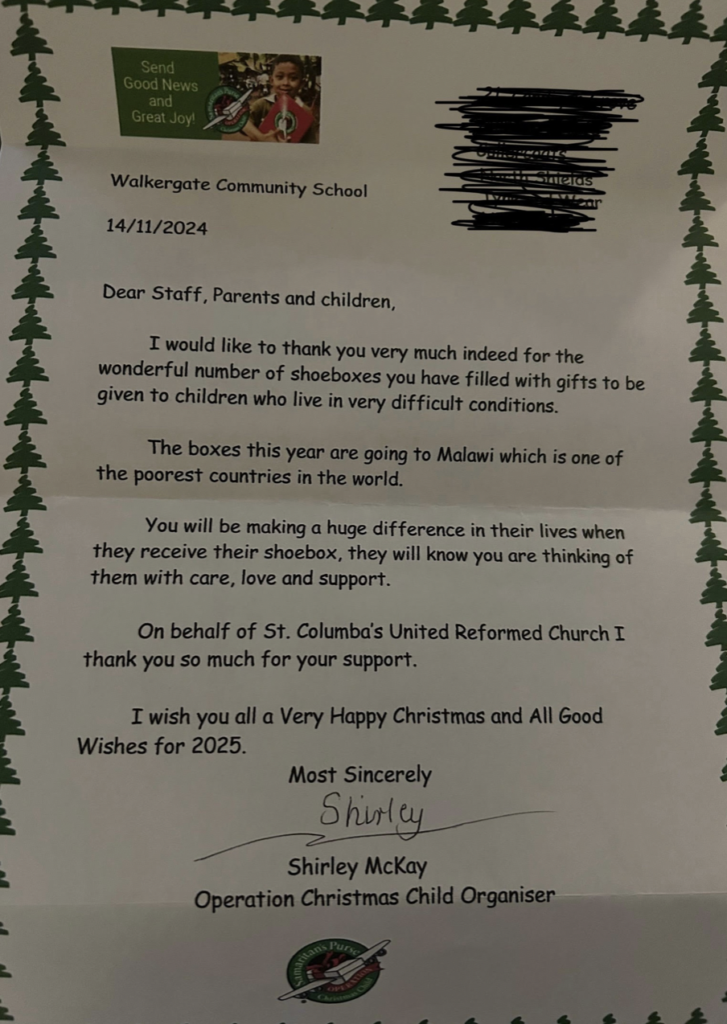 Send
Good News
and
Great Joy!
Walkergate Community School
14/11/2024
Dear Staff, Parents and children,
I would like to thank you very much indeed for the
wonderful number of shoeboxes you have filled with gifts to be
given to children who live in very difficult conditions.
The boxes this year are going to Malawi which is one of
the poorest countries in the world.
You will be making a huge difference in their lives when
they receive their shoebox, they will know you are thinking of
them with care, love and support.
On behalf of St. Columba's United Reformed Church I
thank you so much for your support.
I wish you all a Very Happy Christmas and All Good
Wishes for 2025.
Most Sincerely
Shirley
Shirley McKay
Operation Christmas Child Organiser
Samaritan's Purse
OPERATION
Christmas Child